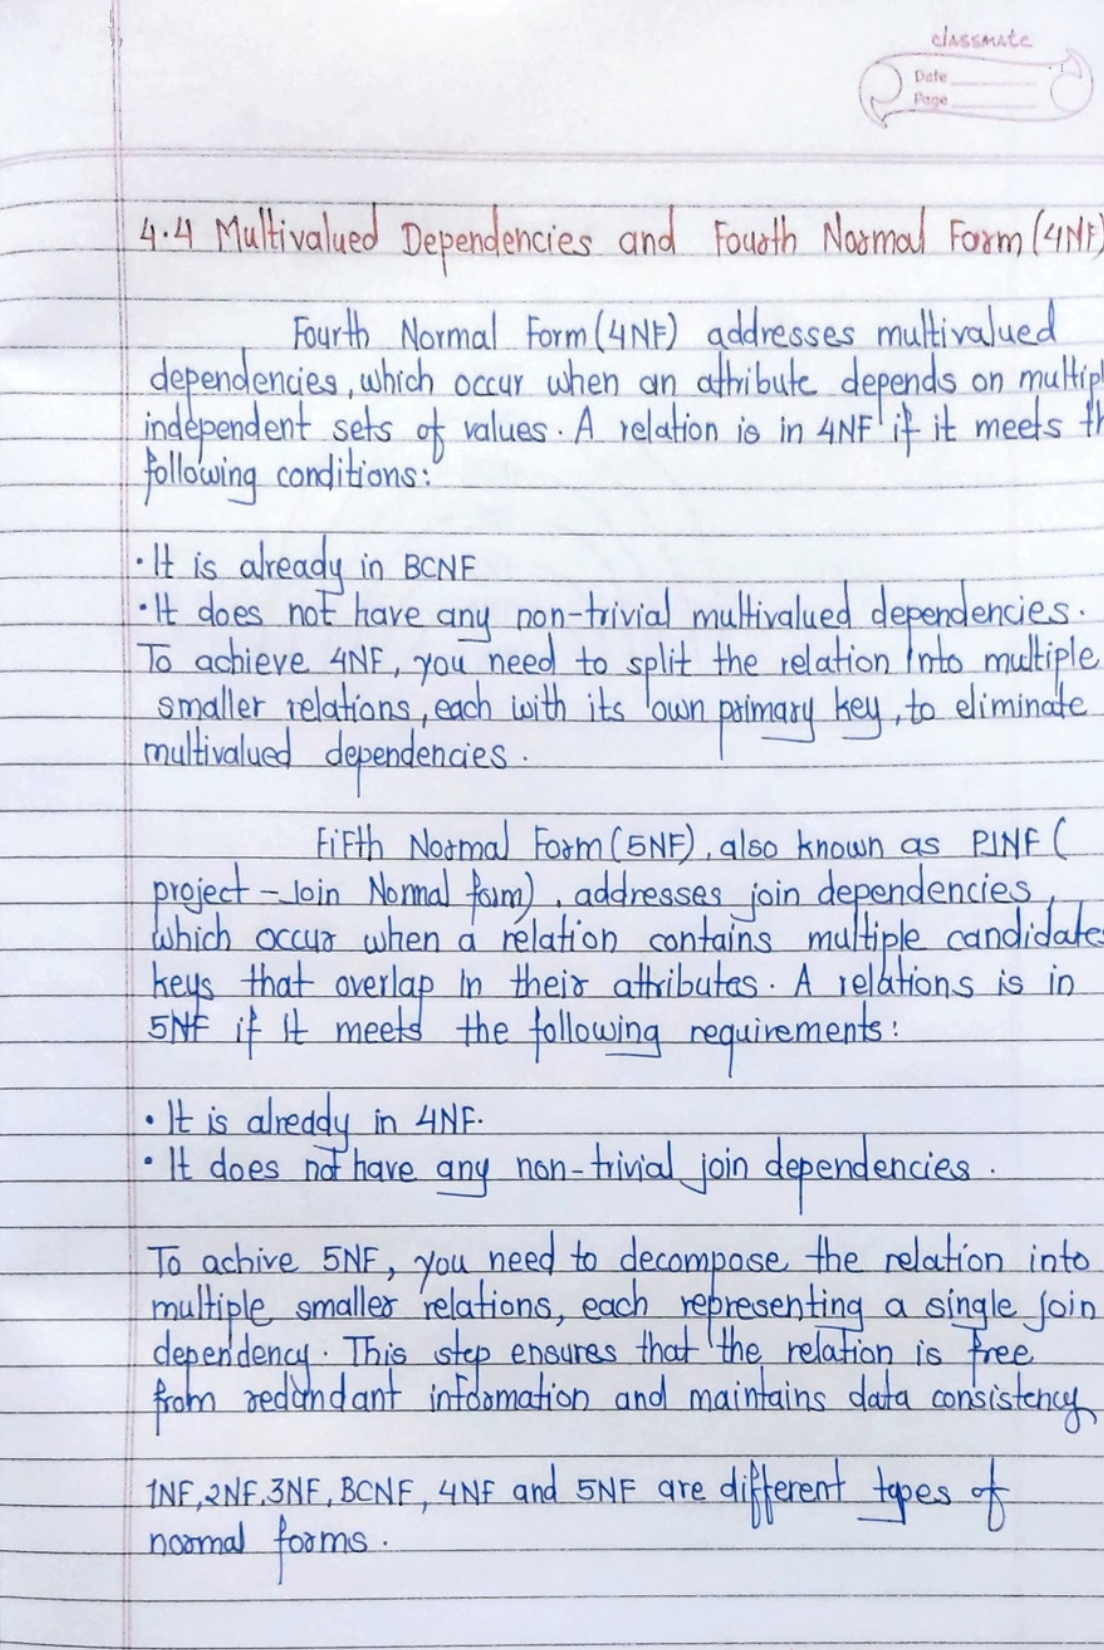 classmate
Date
Page
4.4 Multivalued Dependencies and Fourth Normal Form (4NF)
Fourth Normal Form (4NF) addresses multivalued
dependencies, which occur when an attribute depends on multipl
independent sets of values. A relation is in 4NF if it meets th
following conditions:
• It is already in BCNF
• It does not have any non-trivial multivalued dependencies.
To achieve 4NF, you need to split the relation into multiple
smaller relations, each with its own primary key, to eliminate
multivalued dependencies.
FiFth Normal Form (5NF), also known as PJNF (
project - Join Normal form), addresses join dependencies,
which occur when a relation contains multiple candidates
keys that overlap in their attributes. A relations is in
5NF if it meets the following requirements:
• It is already in 4NF.
• It does not have any non-trivial join dependencies.
To achive 5NF, you need to decompose the relation into
multiple smaller relations, each representing a single join
dependency. This step ensures that the relation is free
from redundant information and maintains data consistency
1NF, 2NF, 3NF, BCNF, 4NF and 5NF are different types of
normal forms.